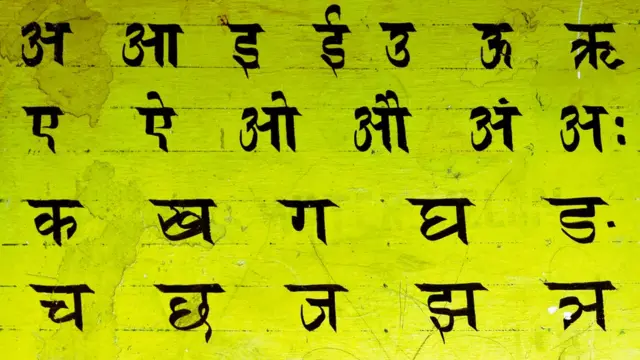 अ आ इ ई उ ऊ ऋ
ए ऐ ओ औ अं अः
क ख ग घ ङ
च छ ज झ ञ